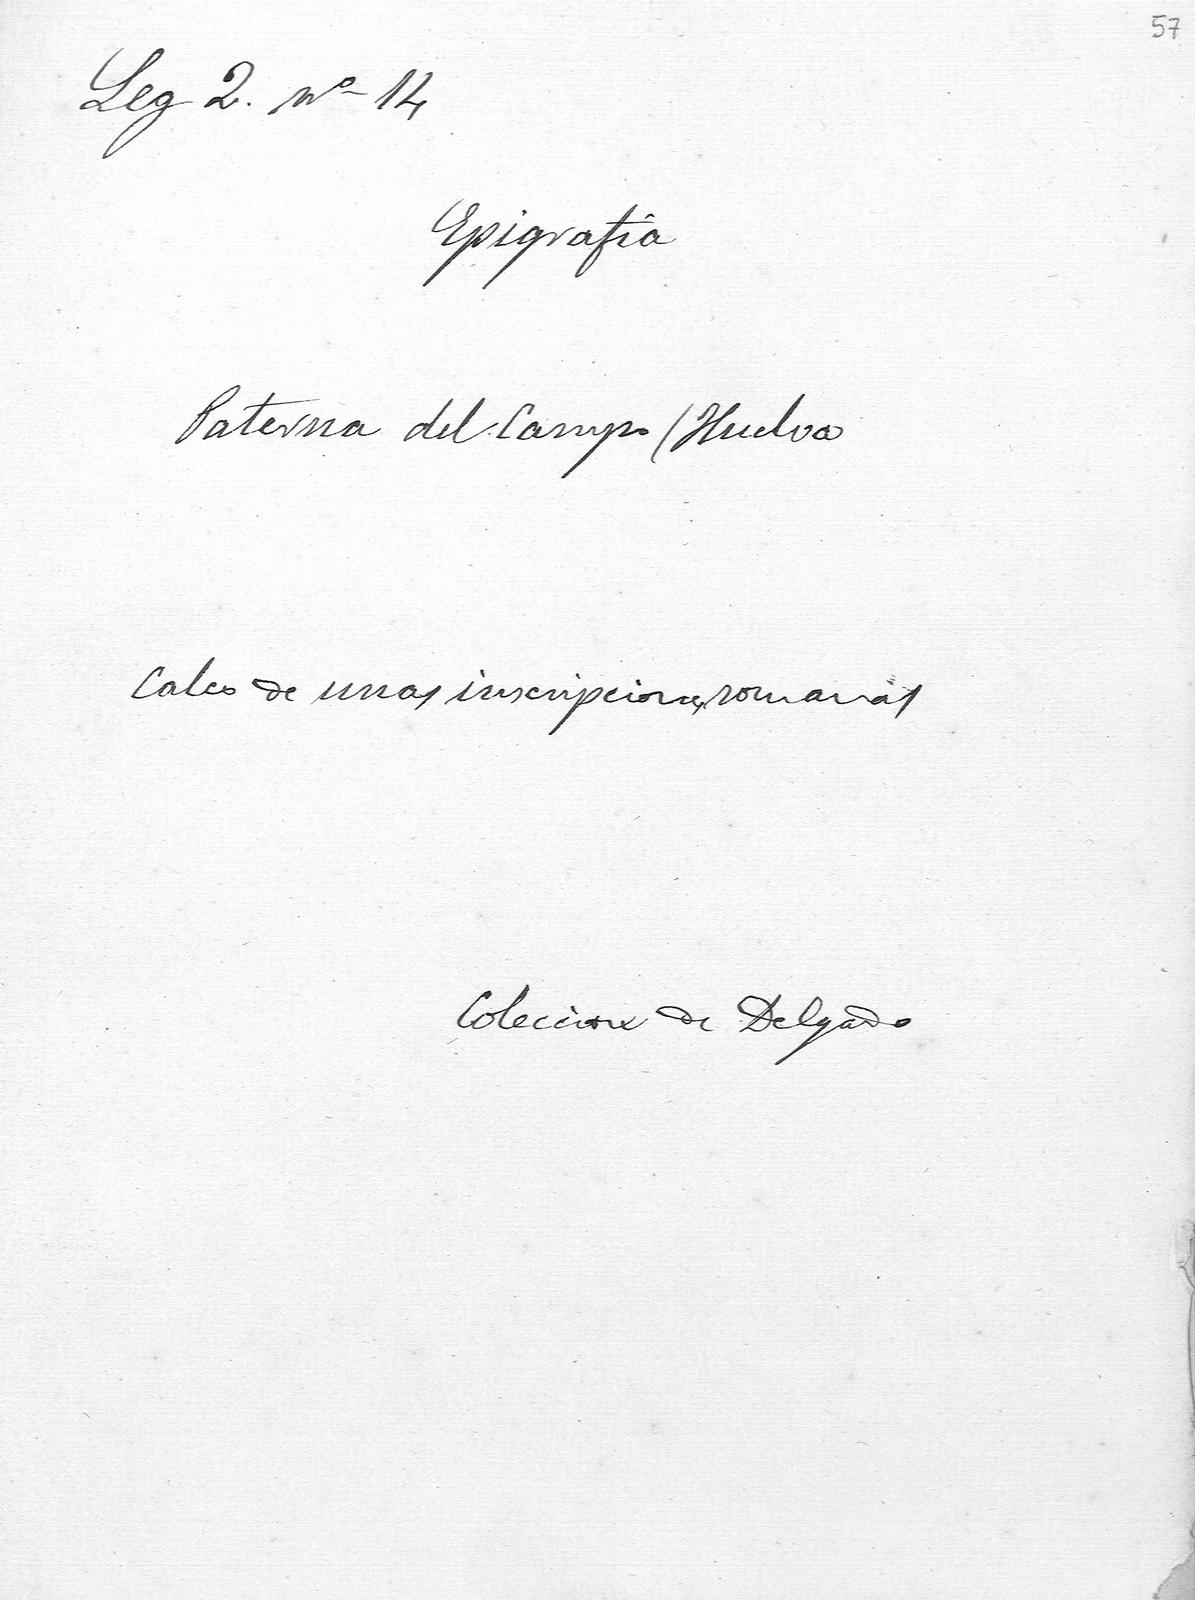 57
Leg 2. nº 14
Epigrafía
Paterna del Campo (Huelva
Calco de unas inscripciones romanas
Colecione de Delgado